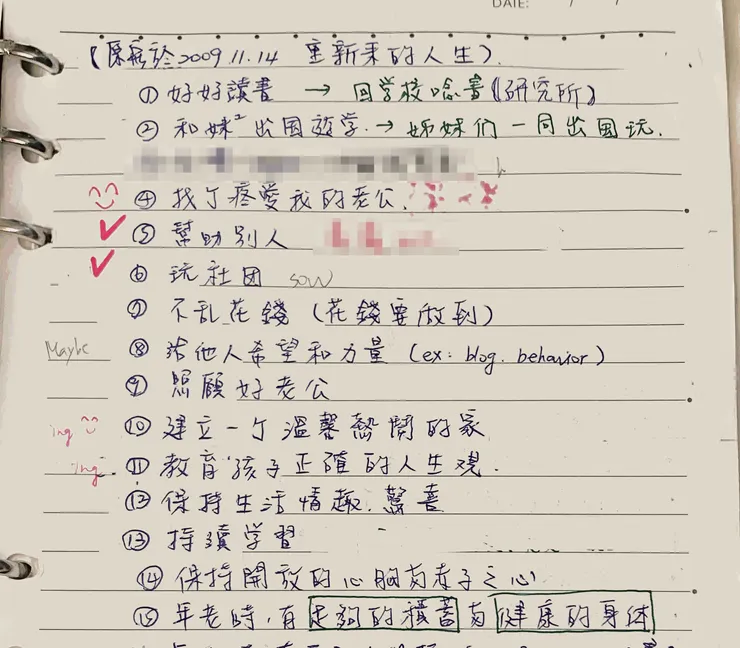 DATE: / /
(原寫於2009.11.14 重新來的人生).
① 好好讀書 → 回学校唸書(研究所)
② 和妹² 出国遊学.→ 姊妹们一同出国玩.
④ 找个疼愛我的老公.
⑤ 幫助別人
⑥ 玩社団 sow
⑦ 不乱花錢 (花錢要做到)
Maybe ⑧ 給他人希望和力量 (ex: blog. behavior)
⑨ 照顧好老公
ing ⑩ 建立一个溫馨熱鬧的家
ing. ⑪ 教育孩子正確的人生观.
⑫ 保持生活情趣.驚喜
⑬ 持續学習
⑭ 保持開放的心胸有赤子之心
⑮ 年老時,有足夠的積蓄有健康的身体